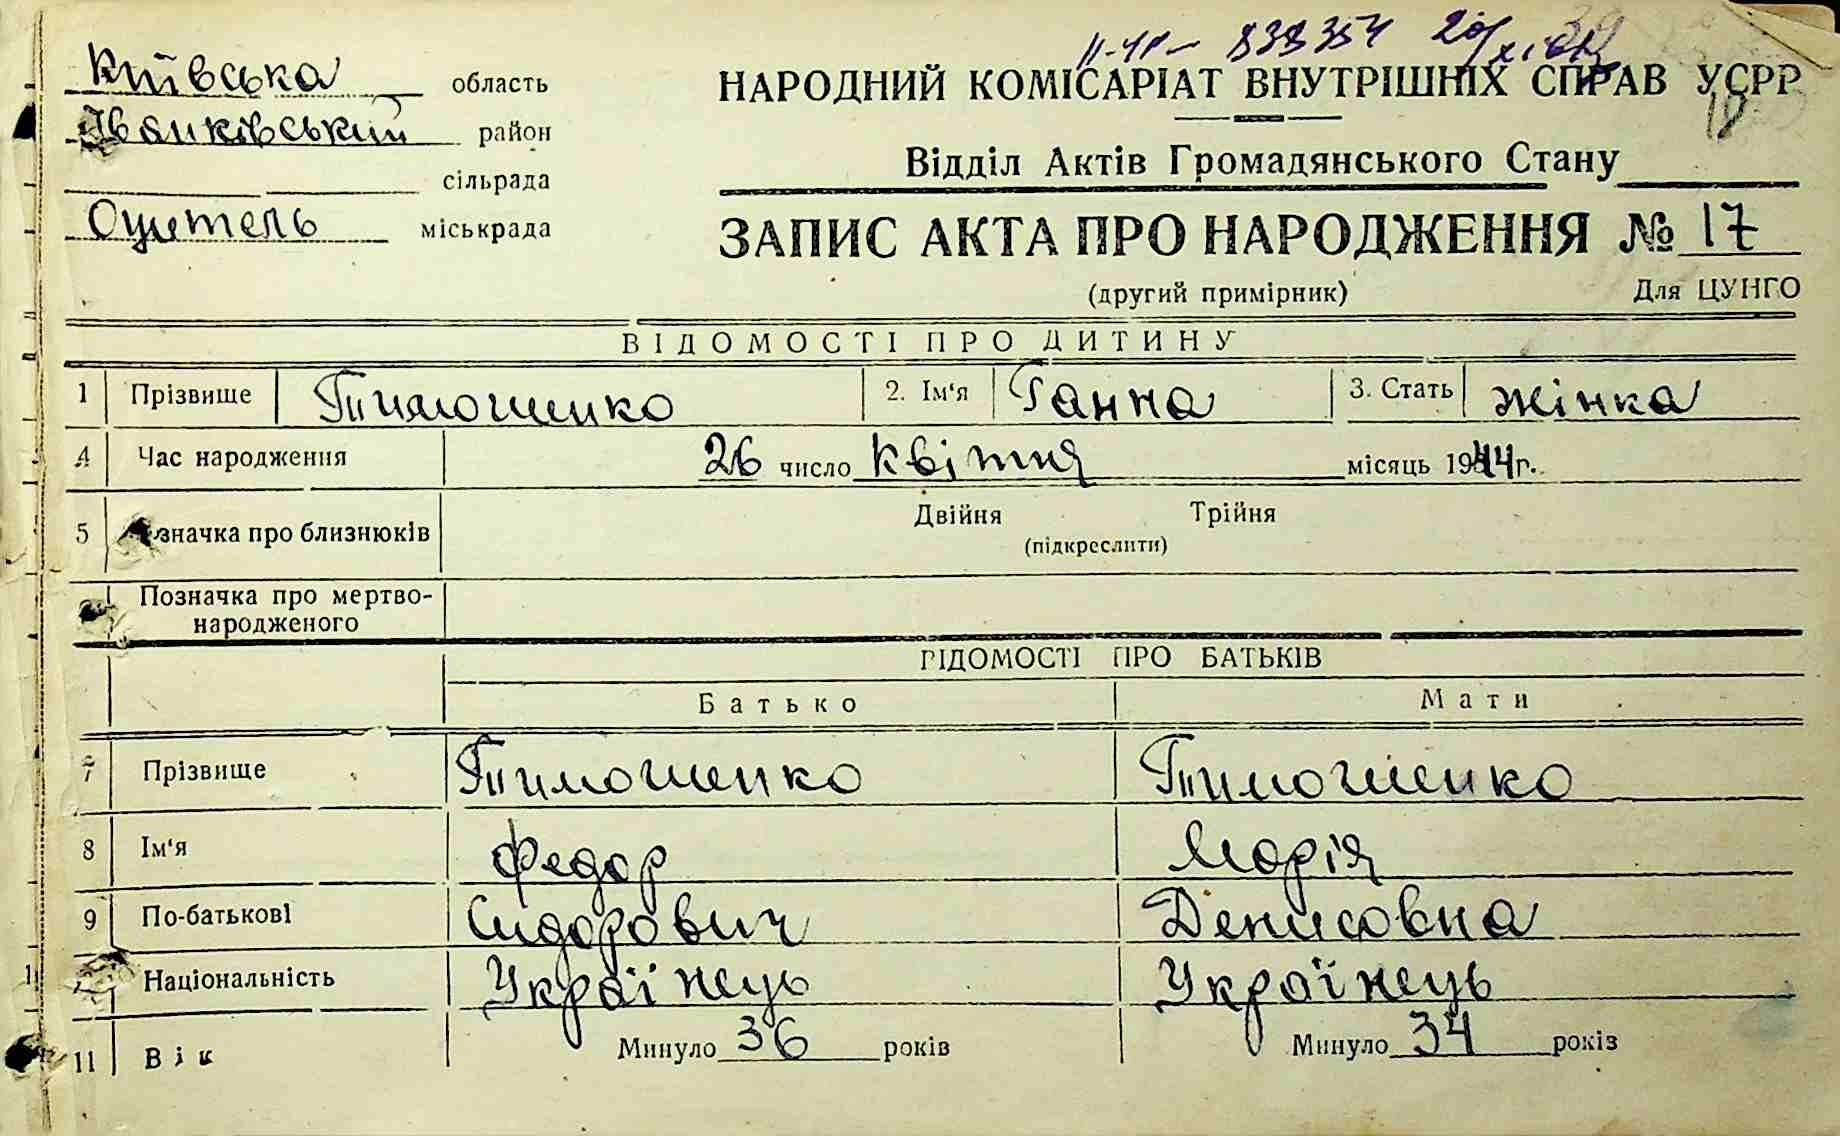 ІІ-ЧР- 838354
Київська область
Іванківський район
сільрада
Оцитель міськрада
НАРОДНИЙ КОМІСАРІАТ ВНУТРІШНІХ СПРАВ УСРР
Відділ Актів Громадянського Стану
ЗАПИС АКТА ПРО НАРОДЖЕННЯ № 17
(другий примірник) Для ЦУНГО
ВІДОМОСТІ ПРО ДИТИНУ
1 Прізвище Тимошенко 2. Ім'я Ганна 3. Стать жінка
4 Час народження 26 число квітня місяць 1944 г.
5 значка про близнюків Двійня Трійня
(підкреслити)
Позначка про мертво-
народженого
ВІДОМОСТІ ПРО БАТЬКІВ
Батько Мати
7 Прізвище Тимошенко Тимошенко
8 Ім'я Федор Марія
9 По-батькові Сидорович Денисовна
Національність Українець Українець
11 Вік Минуло 36 років Минуло 34 років